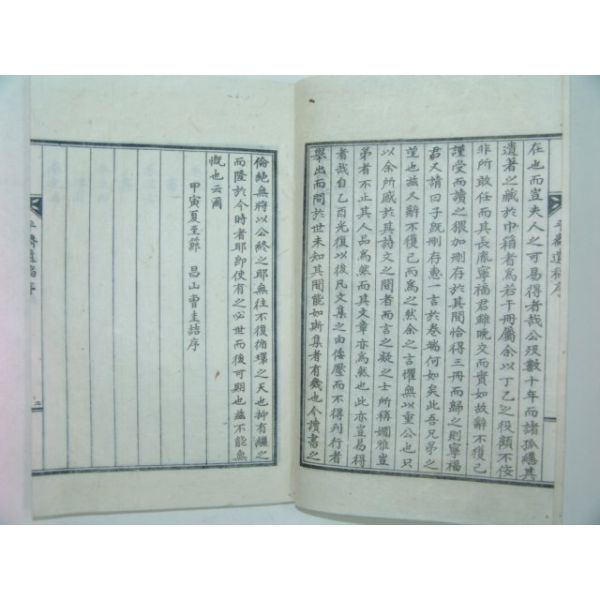 在也而豈夫人之可易得者哉公沒數十年而諸孤緦其
遺著之藏於巾箱者爲若干冊屬余以丁乙之役顧不佞
非所敢任而其長胤寧福君雖晚交而實如故辭不獲已
謹受而讀之猥加刪存於其間恰得三冊而歸之則寧福
君又請曰子旣刪存惠一言於卷端何如矣此吾兄弟之
望也玆又辭不獲已而爲之然余之言懼無以重公也只
以余所感於其詩文之間者而言之凝之士所稱嫺雅豈
弟者不止其人品爲然而其文章亦爲然也此亦豈易得
者哉自乙酉光復以後凡文集之由倭壓而不得刊行者
擧出而問於世未知其間能如斯集者有幾也今讀書之
平齋遺稿序
倫純無將以公終之耶無往不復循環之天也抑有繼之
而陸於今時者耶卽使有之必世而後可期也蘊不能無
慨也云爾
甲寅夏至節 昌山曺圭喆序
平齋遺稿序
二